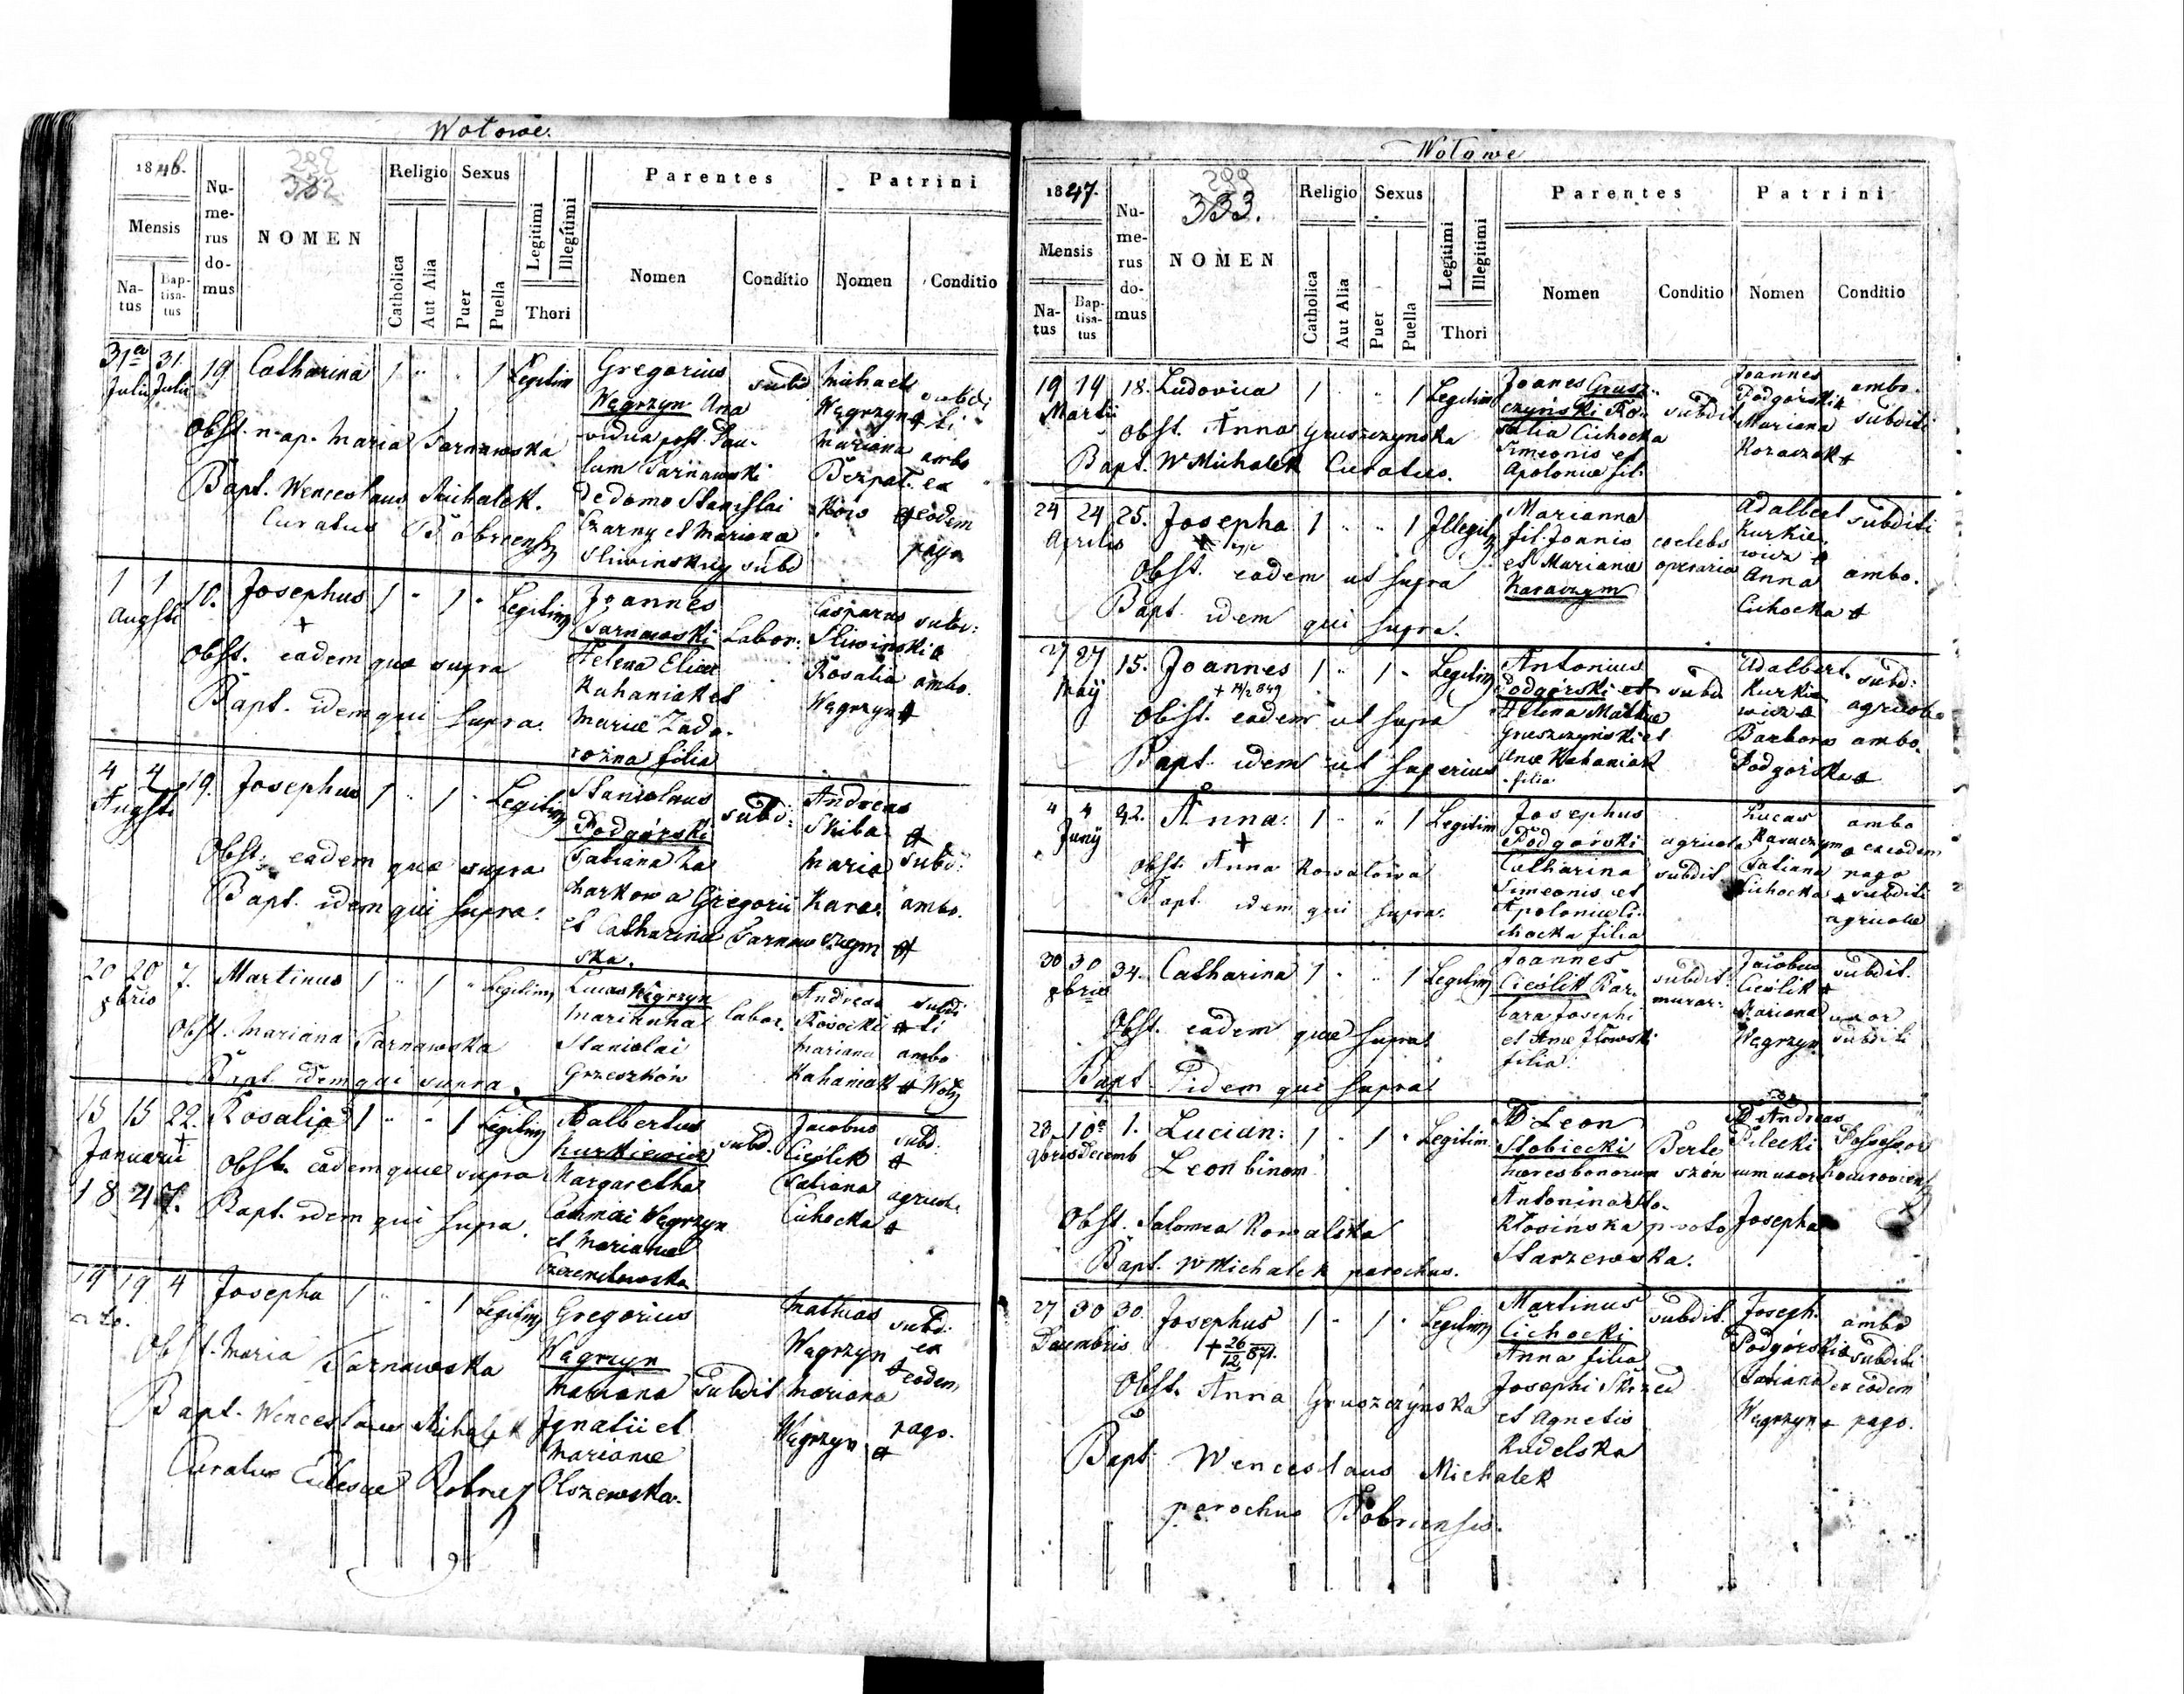 Wołowe.
1846.
Mensis
Na-
tus
Bap-
tisa-
tus
Nu-
me-
rus
do-
mus
332
NOMEN
Religio
Catholica
Aut Alia
Sexus
Puer
Puella
Legitimi
Illegitimi
Thori
Parentes
Nomen
Conditio
Patrini
Nomen
Conditio
31a 31. 19 Catharina 1 " " 1 Legitim Gregorius subd Michael subdi
Julii Julii Węgrzyn Ana Węgrzyn + ti
Obst. n. ap. Maria Tarnawska vidua post Pau- Mariana ambo
lum Tarnawski Bezpal. ex
Bapt. Wenceslaus Michalek. de domo Stanislai ków + eodem
Curatus Bobrcensis Czarny et Mariana pago
Sliwinskiy subd
1 1 10. Josephus 1 " 1 " Legitim Joannes Labor. Casparus subd:
Augsti + Tarnawski Sliwinski +
Obst. eadem quae supra Helena Eliae Rosalia ambo.
Kahaniak et Węgrzyn +
Bapt. idem qui supra. Mariae Zado-
rożna filia
4 4 19. Josephus 1 " 1 " Legitim Stanislaus subd: Andreas
Augsti Podgórski Skiba +
Obst: eadem quae supra Tatiana Za Maria subd:
charkowa Gregorii Kara- ambo.
Bapt. idem qui supra. et Catharina Tarnaw czym +
ska.
20 20 7. Martinus 1 " 1 " Legitim Lucas Węgrzyn labor. Andreas subdi
8bris Marianna Kosocki + ti
Obst. Mariana Tarnawska Stanislai Mariana ambo
Grzeszków Kahaniak + Woły
Bapt. idem qui supra.
15 15 22. Rosalia 1 " " 1 Legitim Adalbertus subd. Jacobus subd:
Januarii + Kurkiewicz Cieślik +
Obst. eadem quae supra Margaretha Tatiana agricol.
1847. Casimiri Węgrzyn Cichocka +
Bapt. idem qui supra. et Mariana
19 19 4 Josepha 1 " " 1 Legitim Gregorius Mathias subd:
Węgrzyn Węgrzyn ex
Obst. Maria Tarnawska Mariana subdit Mariana + eodem
Bapt. Wenceslaus Michalek Ignatii et Węgrzyn pago.
Marianae +
Curatus Ecclesiae Olszewska.
Wołowe
1847.
Mensis
Na-
tus
Bap-
tisa-
tus
Nu-
me-
rus
do-
mus
333.
NOMEN
Religio
Catholica
Aut Alia
Sexus
Puer
Puella
Legitimi
Illegitimi
Thori
Parentes
Nomen
Conditio
Patrini
Nomen
Conditio
19 19 18. Ludovica 1 " " 1 Legitim Joanes Grusz- subdit Joannes ambo.
Martii czyński Ro- Podgórski +
Obst. Anna Gruszczynska salia Cichocka Mariana subditi
Simeonis et Koraczek +
Bapt. W Michalek Curatus. Apoloniae fili
24 24 25. Josepha 1 " " 1 Illegit Marianna coelebs Adalbert subditi
Aprilis fil: Joanis operaria Kurkie-
Obst. eadem ut supra et Marianae wicz + ambo.
Karaczym Anna
Bapt. idem qui supra. Cichocka +
27 27 15. Joannes 1 " 1 " Legitim Antonius subd Adalbert. subd:
Maÿ + 14/2 849 Podgórski et Kurkie
Obst. eadem ut supra Helena Mathiae wicz + agricolae
Gruszczyński et Barbara ambo.
Bapt. idem ut superius Anae Kahaniak Podgórska +
filia
4 4 42. Anna: 1 " " 1 Legitim Josephus agricola Lucas ambo
Junÿ + Podgórski subdit Karaczym + ex eodem
Obst: Anna Kowalowa Catharina Tatiana pago
Simeonis et Cichocka + subditi
Bapt. idem qui supra. Apoloniae Ci- agricolae
chocka filia
30 30 34. Catharina 1 " " 1 Legitim Joannes subdit: Jacobus subdit.
8bris Cieślik Bar- murar: Cieślik +
Obst. eadem quae supra bara Josephi Mariana uxor
et Anae Iłowski Węgrzyn subditi
Bapt. idem qui supra filia.
28 10a 1. Lucian: 1 " 1 " Legitim D Leon Berte D Andreas Possessor
9bris decemb Leon binom Słobiecki szón Pilecki
haeres bonorum cum uxore
Obst. Salomea Kowalska Antonina Josepha
Bapt. W Michalek parochus. Starzewska.
27 30 30. Josephus 1 " 1 " Legitim Martinus subdit. Joseph. ambo
Decembris + 26/12 871. Cichocki Podgórski + subditi
Obst. Anna Gruszczynska Anna filia Tatiana ex eodem
Josephi Skrzed Węgrzyn + pago.
et Agnetis
Bapt. Wenceslaus Michalek Kudelska
parochus Bobrcensis.